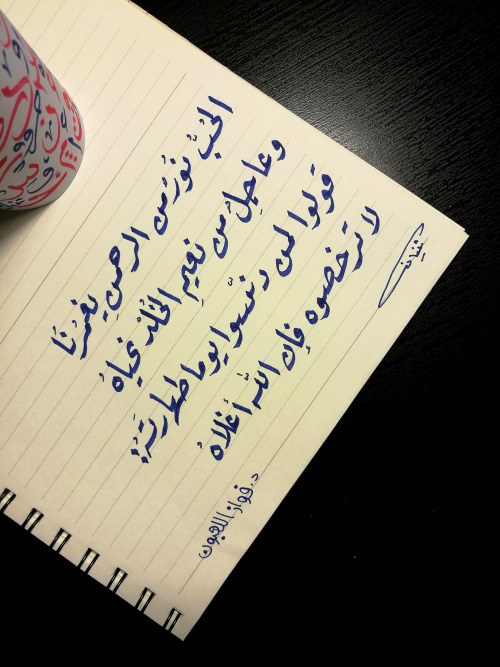 الحُبُّ نُورٌ من الرحمنِ يغمُرُنَا
وعاجِلٌ من نعيمِ الخُلدِ نحياهُ
قولوا لمن دنَّسوا يوما طهارتَهُ:
لا ترخصوه فإن الله أغلاهُ
د. فواز اللعبون